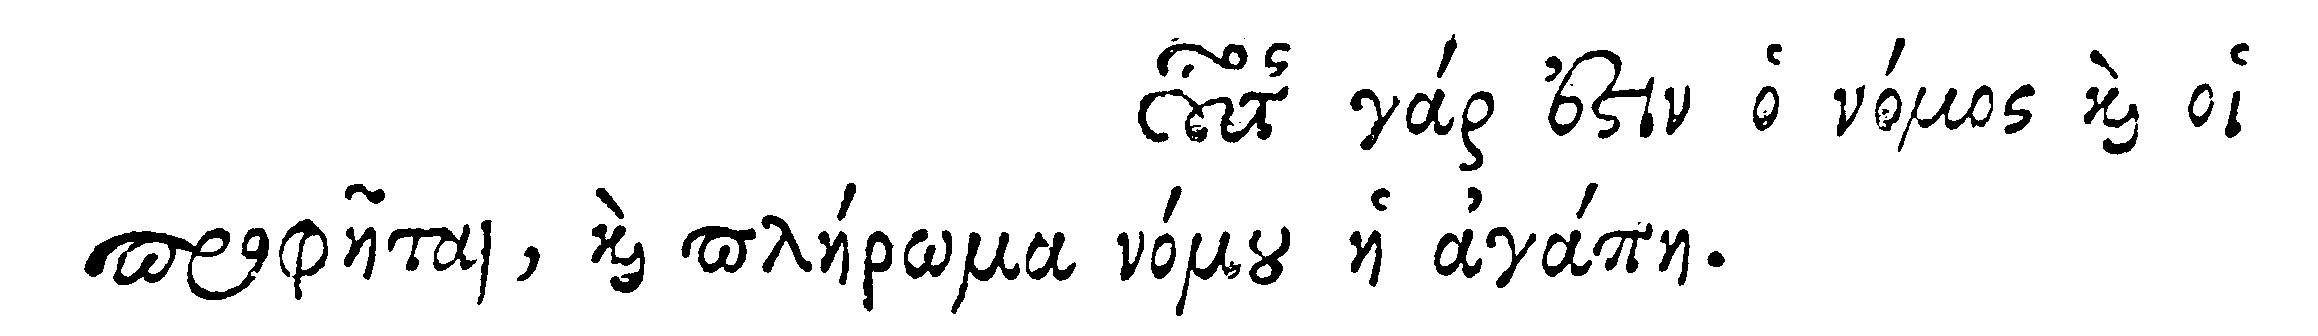 οὗτος γάρ ἐστιν ὁ νόμος καὶ οἱ
προφῆται, καὶ πλήρωμα νόμου ἡ ἀγάπη.